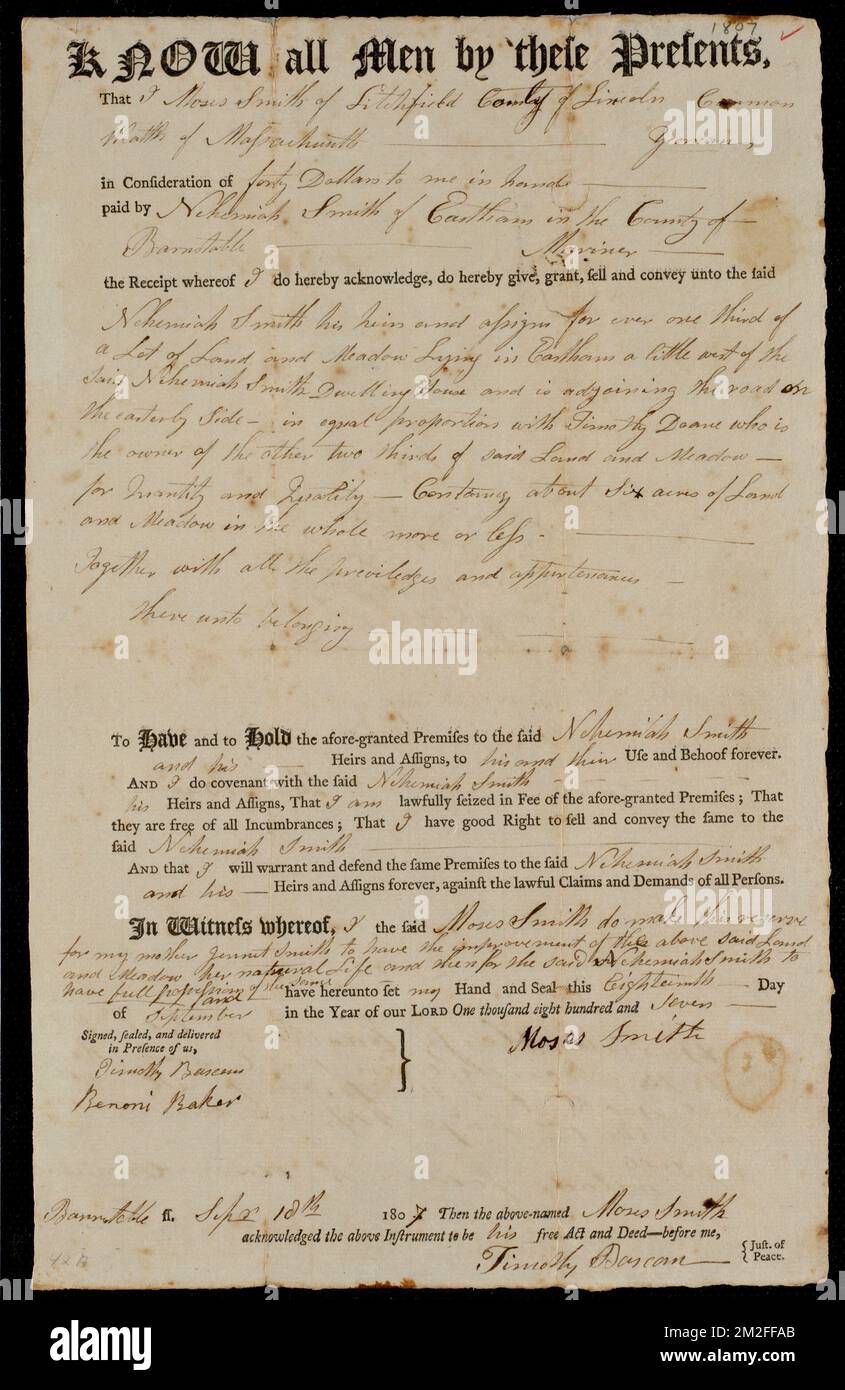 1807
KNOW all Men by theſe Preſents,
That I Moses Smith of Litchfield County of Lincoln Common
Wealth of Massachusetts Yeoman,
in Conſideration of forty Dollars to me in hand
paid by Nehemiah Smith of Eastham in the County of
Barnstable Mariner
the Receipt whereof I do hereby acknowledge, do hereby give, grant, ſell and convey unto the ſaid
Nehemiah Smith his heirs and assigns for ever one third of
a Lot of Land and Meadow Lying in Eastham a little west of the
said Nehemiah Smith Dwelling House and is adjoining the road on
the easterly Side - in equal proportion with Timothy Doane who is
the owner of the other two thirds of said Land and Meadow —
for Quantity and Quality — Containing about six acres of Land
and Meadow in the whole more or less -
Together with all the priviledges and appurtenances -
there unto belonging
To Have and to Hold the afore-granted Premiſes to the ſaid Nehemiah Smith
and his Heirs and Aſſigns, to his and their Uſe and Behoof forever.
AND I do covenant with the ſaid Nehemiah Smith
his Heirs and Aſſigns, That I am lawfully ſeized in Fee of the afore-granted Premiſes; That
they are free of all Incumbrances; That I have good Right to ſell and convey the ſame to the
ſaid Nehemiah Smith
AND that I will warrant and defend the ſame Premiſes to the ſaid Nehemiah Smith
and his — Heirs and Aſſigns forever, againſt the lawful Claims and Demands of all Perſons.
In Witneſs whereof, I the ſaid Moses Smith do make this reserve
for my mother Jennet Smith to have the improvement of the above said Land
and Meadow her natural Life and then for the said Nehemiah Smith to
have full possession of the same
and have hereunto ſet my Hand and Seal this Eighteenth — Day
of September in the Year of our LORD One thouſand eight hundred and Seven
Signed, ſealed, and delivered
in Preſence of us,
Moses Smith
Timothy Bascom
Benoni Baker
Barnstable ſſ. Sepr 18th 1807 Then the above-named Moses Smith
acknowledged the above Inſtrument to be his free Act and Deed—before me,
Timothy Bascom { Juſt. of
Peace.
alamy
Image ID: 2M2FFAB
www.alamy.com